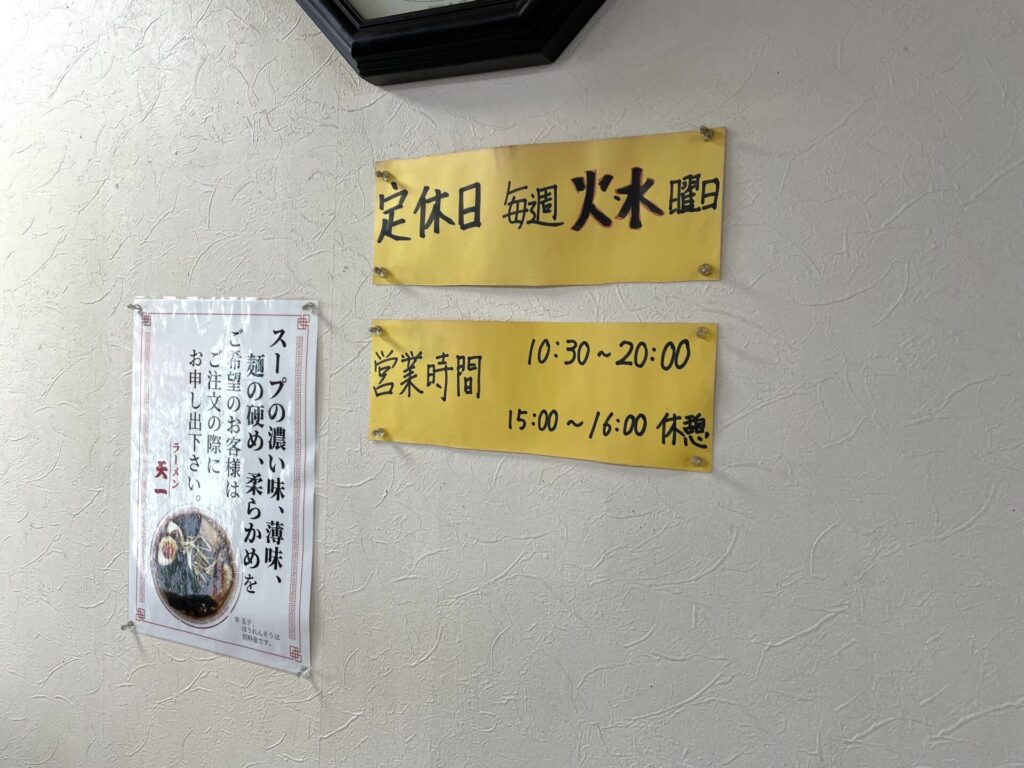 定休日 毎週 火・水 曜日
営業時間 10:30～20:00
15:00～16:00 休憩
スープの濃い味、薄味、
麺の硬め、柔らかめを
ご希望のお客様は
ご注文の際に
お申し出下さい。
ラーメン
天一
※玉子、
ほうれんそうは
別料金です。